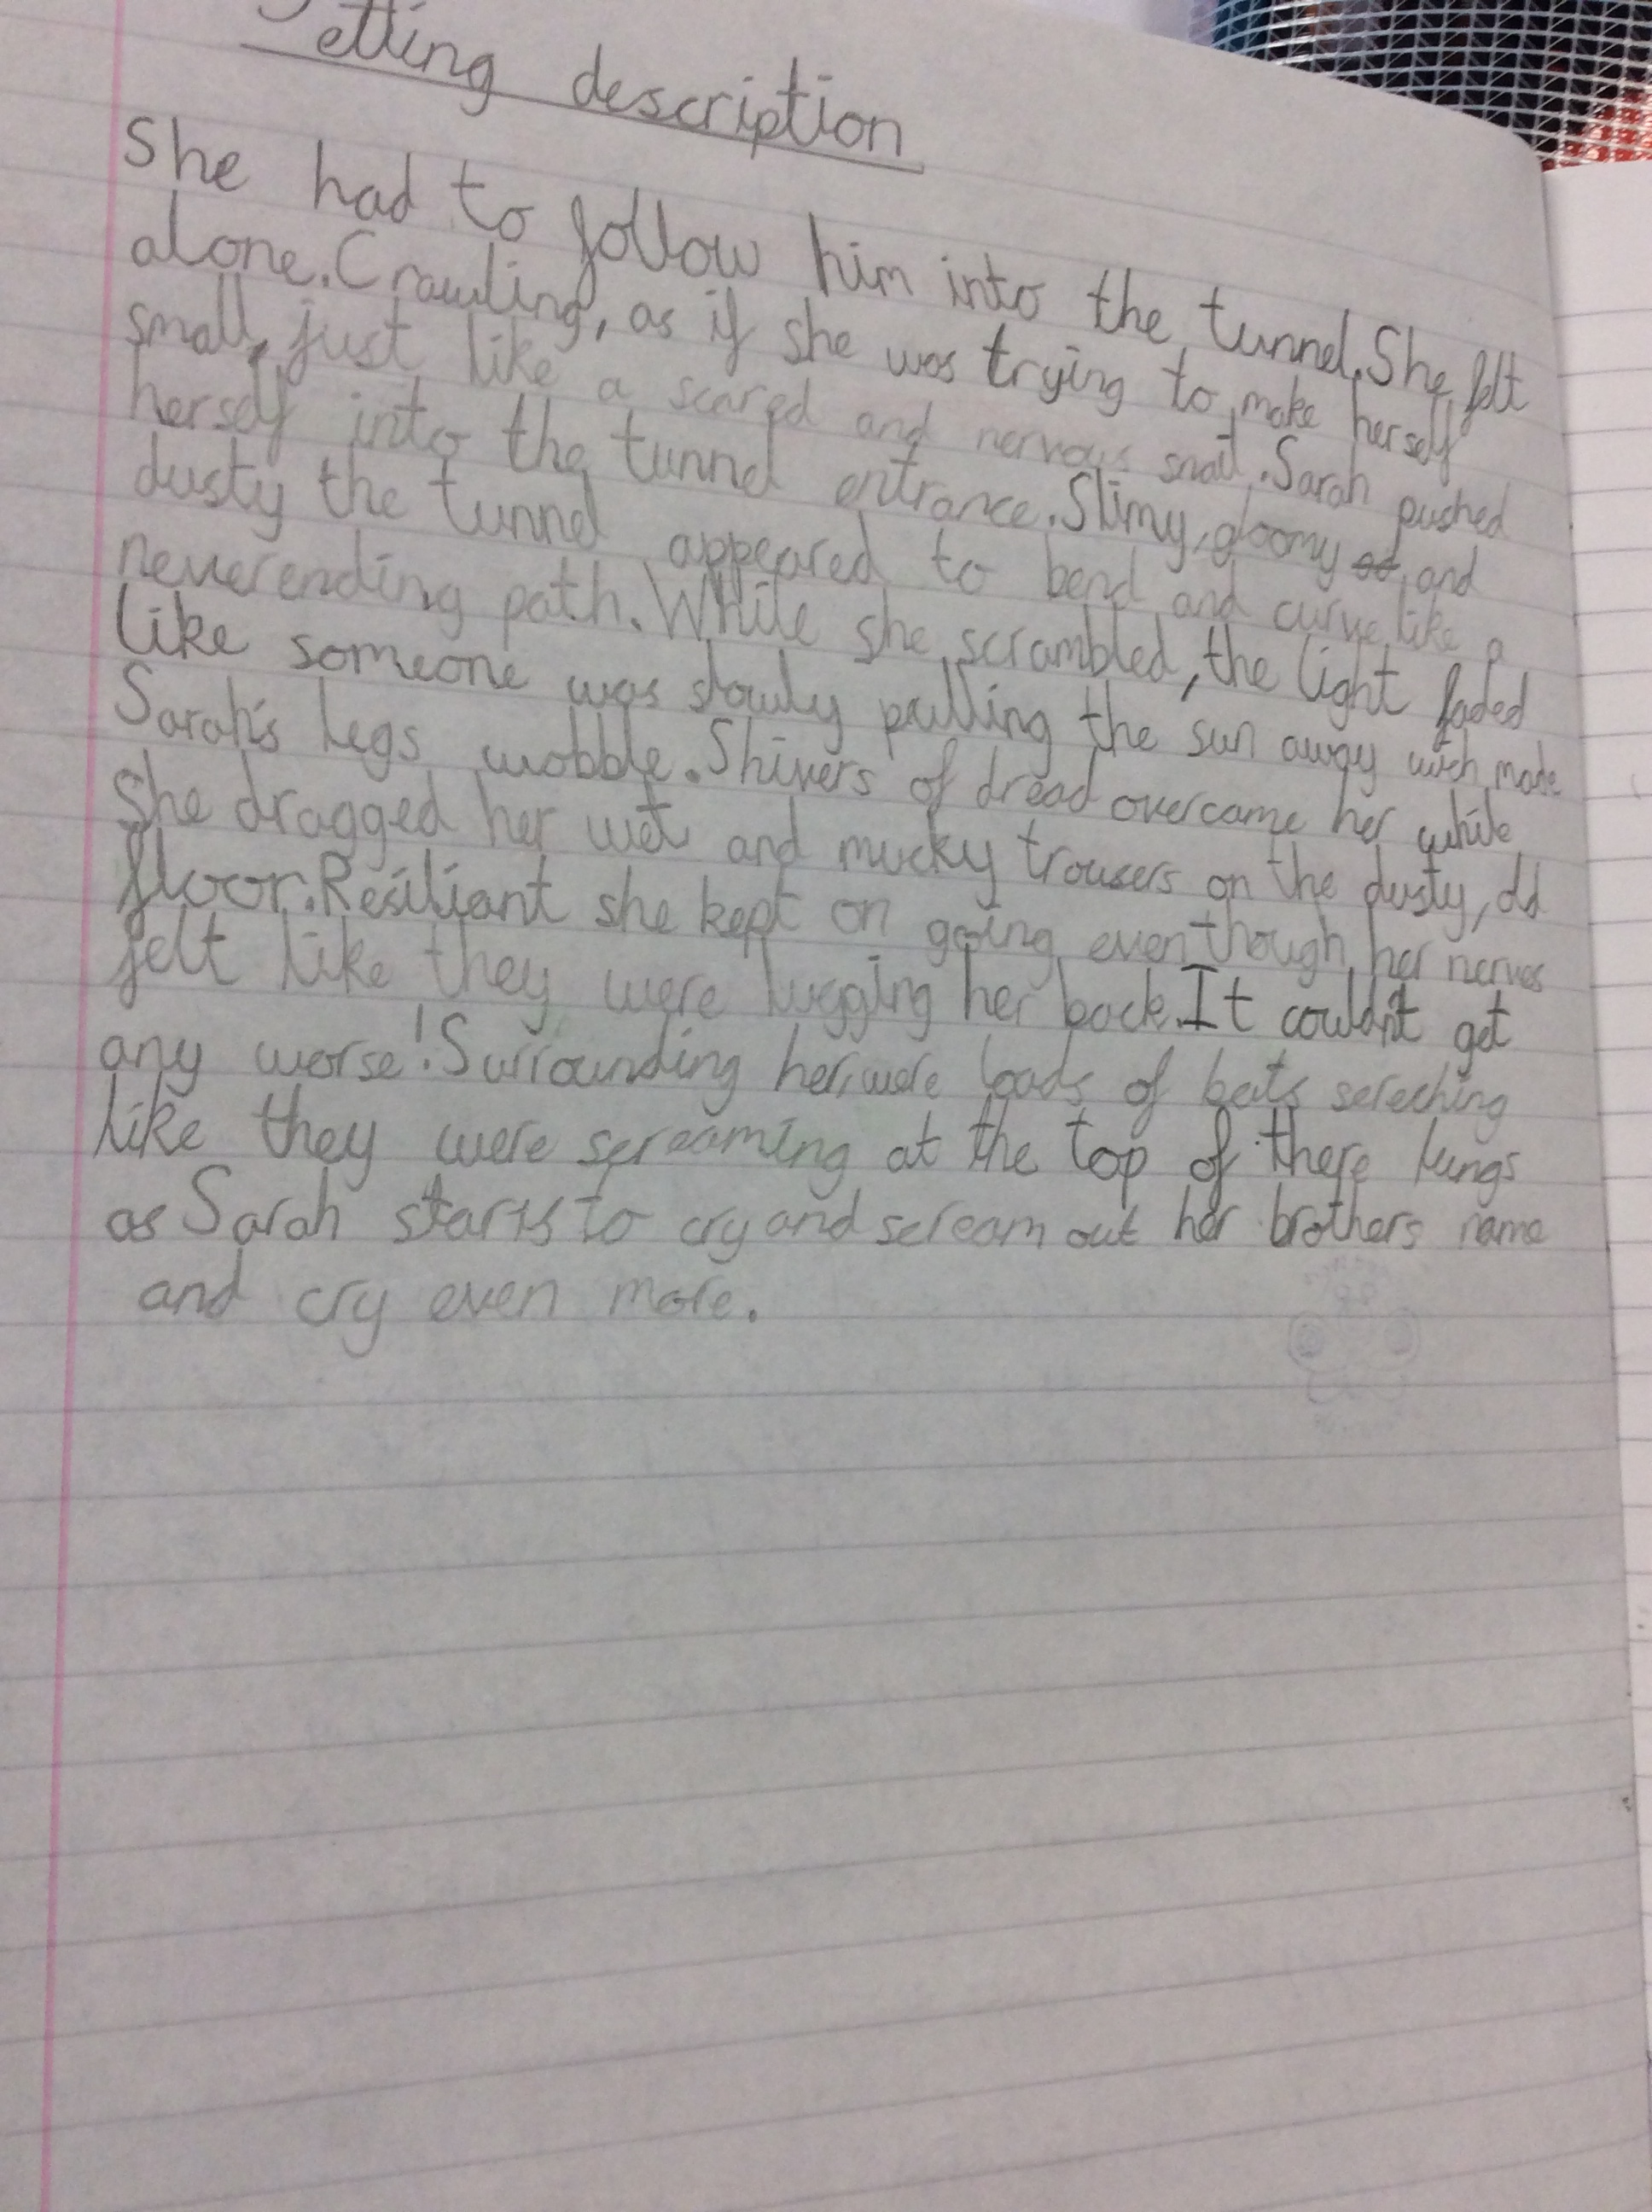 Setting description
She had to follow him into the tunnel. She felt
alone. Crawling, as if she was trying to make herself
small, just like a scared and nervous snail. Sarah pushed
herself into the tunnel entrance. Slimy, gloomy and
dusty the tunnel appeared to bend and curve like a
neverending path. While she scrambled, the light faded
like someone was slowly pulling the sun away wich made
Sarah's legs wobble. Shivers of dread overcame her while
she dragged her wet and mucky trousers on the dusty, old
floor. Resiliant she kept on going even though her nerves
felt like they were lugging her back. It couldn't get
any worse! Surrounding her, were loads of bats sereching
like they were screaming at the top of there lungs
as Sarah starts to cry and scream out her brothers name
and cry even more.